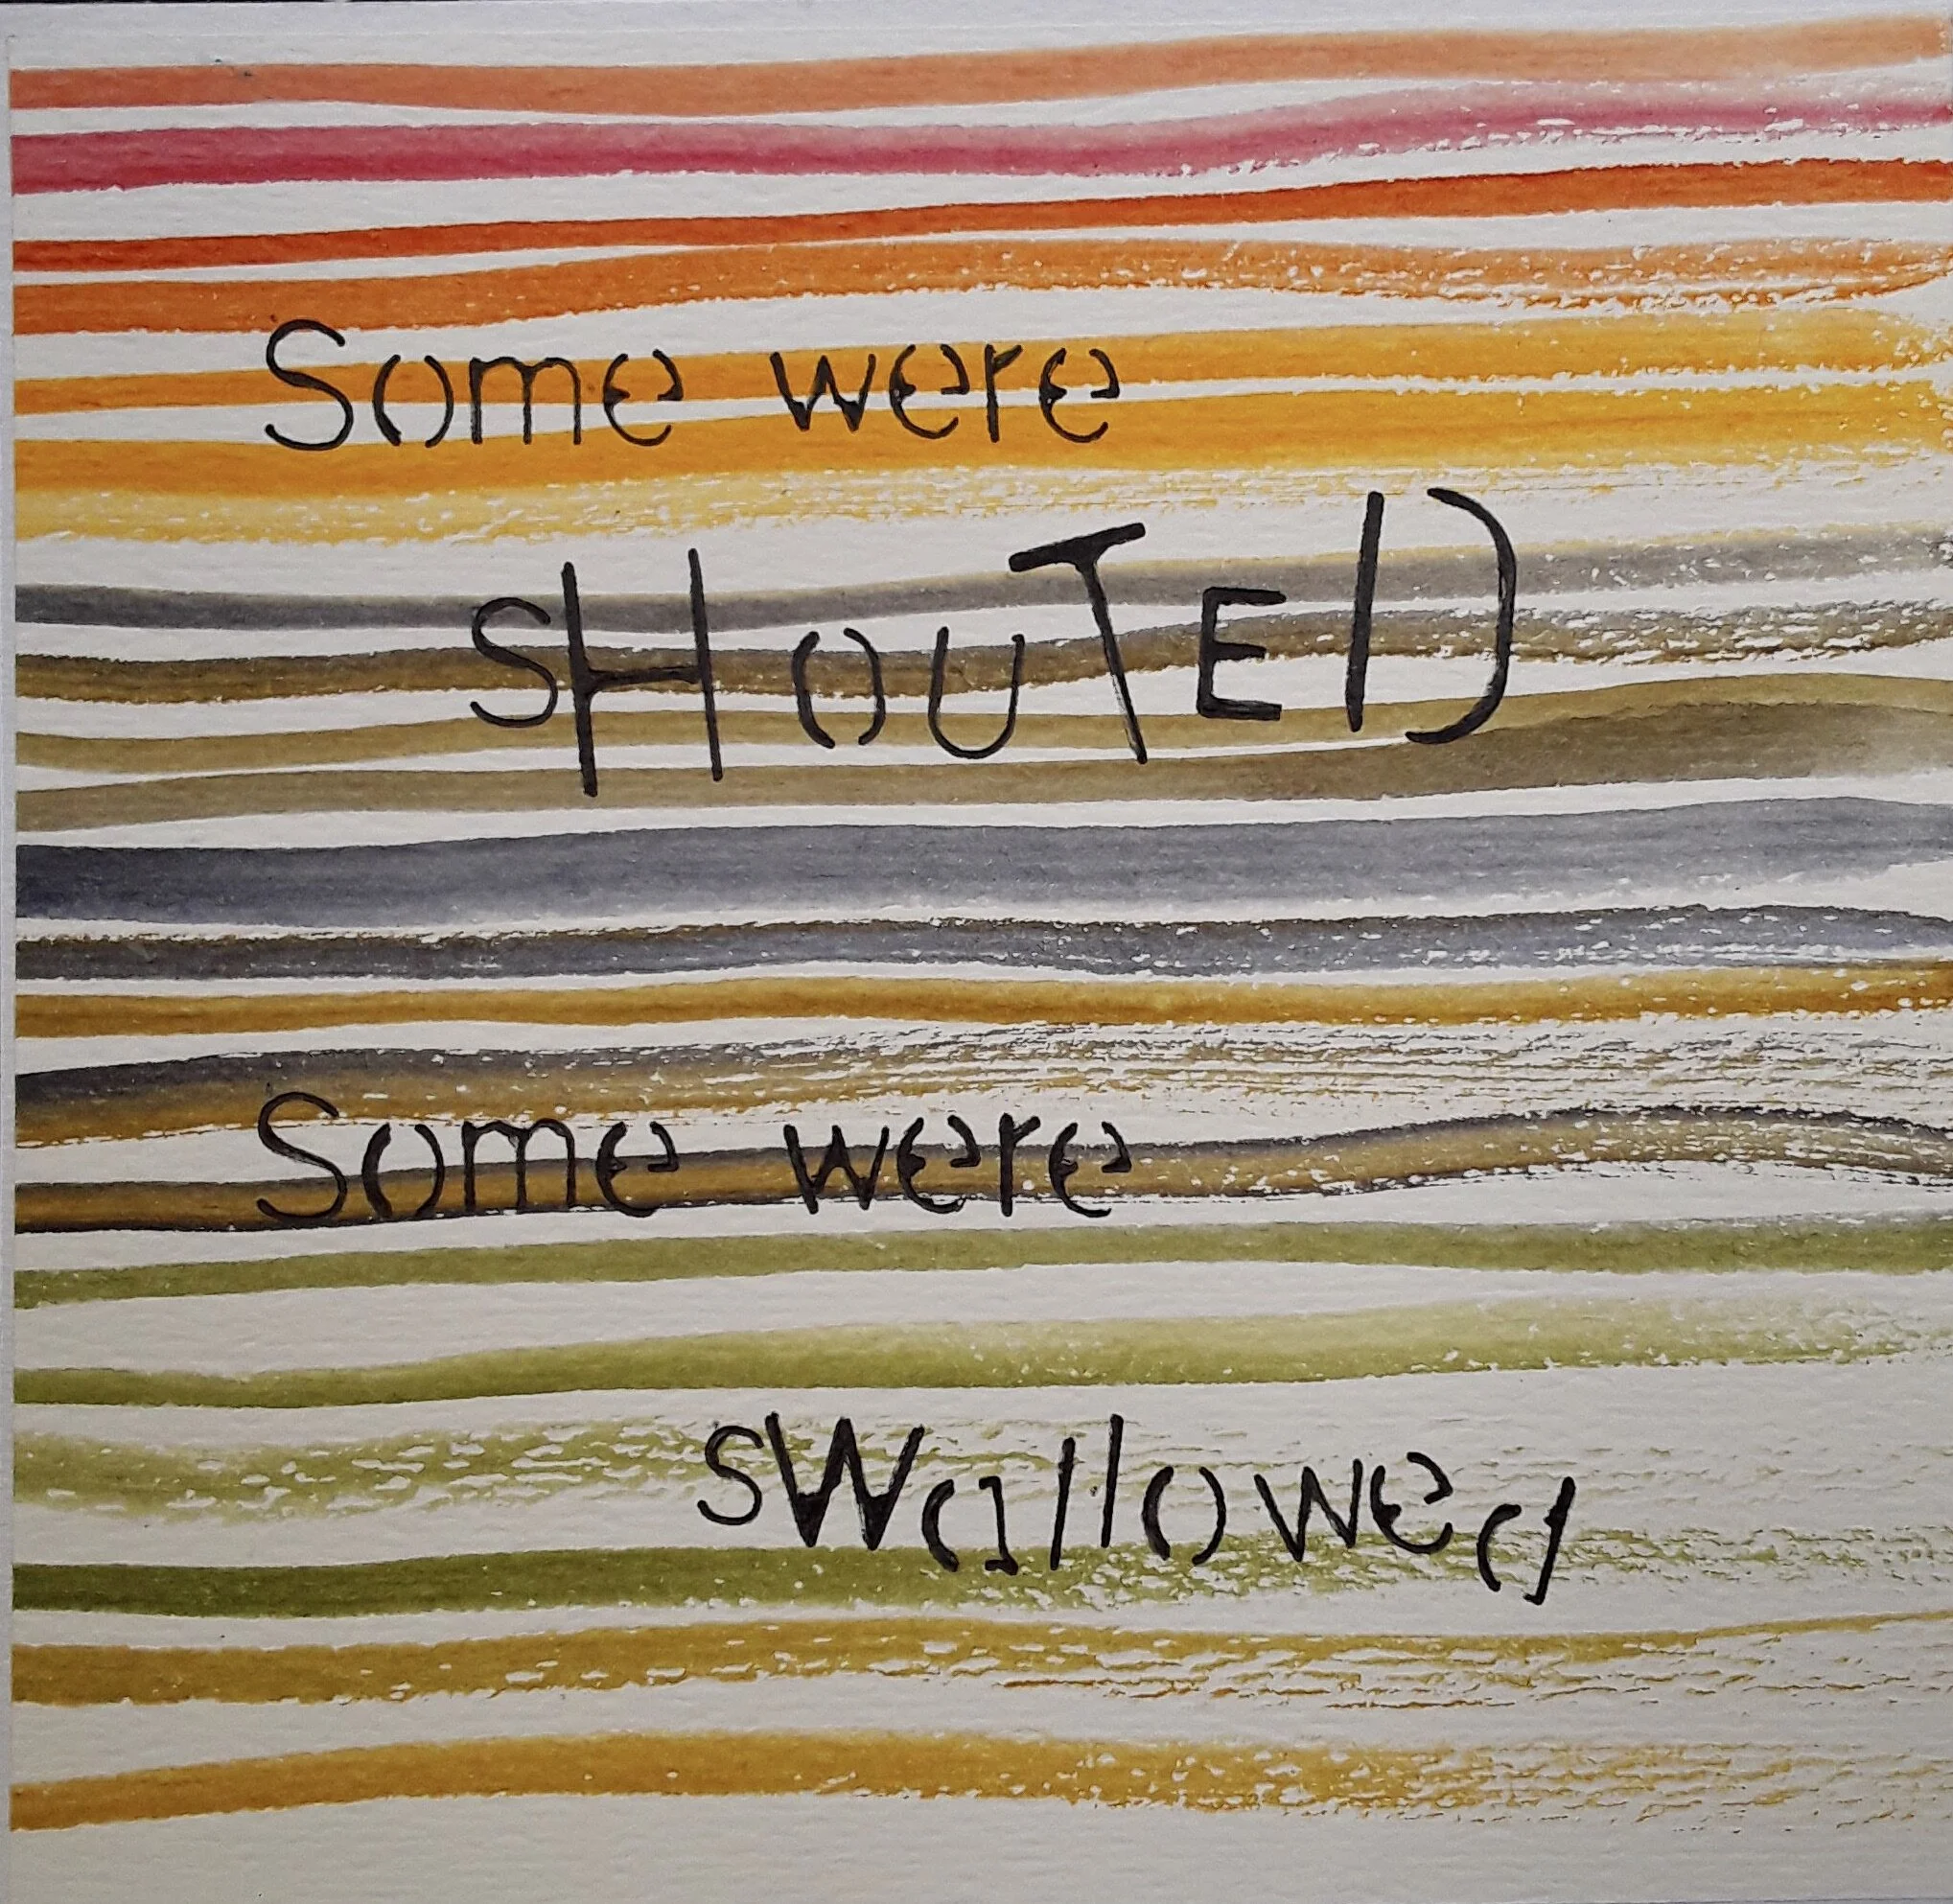 Some were
sHOUTED
Some were
sWallowed